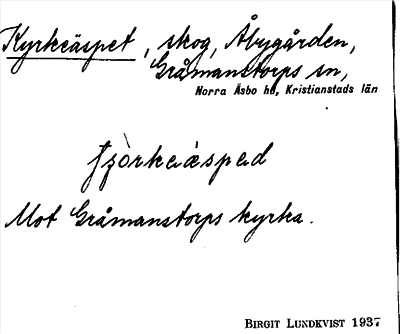 Kyrkeäspet, skog, Åbygården,
Gråmanstorps sn,
Norra Åsbo hd, Kristianstads län
Mot Gråmanstorps kyrka.
BIRGIT LUNDKVIST 1937